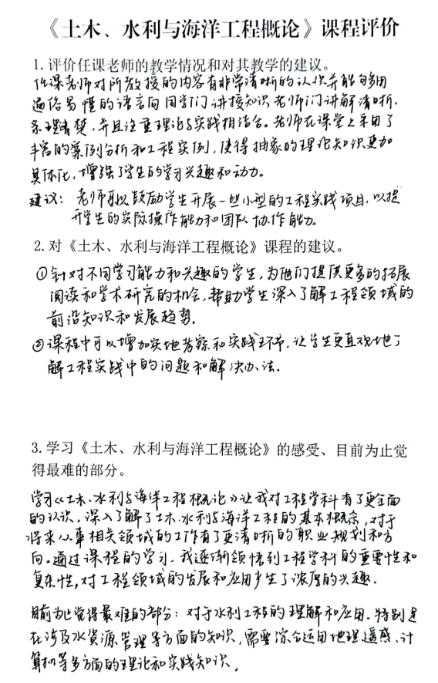 《土木、水利与海洋工程概论》课程评价
1.评价任课老师的教学情况和对其教学的建议。
任课老师对所教授的内容有非常清晰的认识并能够用
通俗易懂的语言向同学们讲授知识,老师们讲解清晰、
条理清楚,并且注重理论与实践相结合。老师在课堂上采用了
丰富的案例分析和工程实例,使得抽象的理论知识更加
具体化,增强了学生的学习兴趣和动力。
建议:老师可以鼓励学生开展一些小型的工程实践项目,以提
升学生的实际操作能力和团队协作能力。
2.对《土木、水利与海洋工程概论》课程的建议。
①针对不同学习能力和兴趣的学生,为他们提供更多的拓展
阅读和学术研究的机会,帮助学生深入了解工程领域的
前沿知识和发展趋势。
②课程中可以增加实地考察和实践环节,让学生更直观地了
解工程实践中的问题和解决办法.
3.学习《土木、水利与海洋工程概论》的感受、目前为止觉
得最难的部分。
学习《土木、水利与海洋工程概论》让我对工程学科有了更全面
的认识,深入了解了土木、水利与海洋工程的基本概念,对于
将来从事相关领域的工作有了更清晰的职业规划和方
向。通过课程的学习,我逐渐领悟到工程学科的重要性和
复杂性,对工程领域的发展和应用产生了浓厚的兴趣.
目前为止觉得最难的部分:对于水利工程的理解和应用。特别是
在涉及水资源管理等方面的知识,需要综合运用地理遥感、计
算机等多方面的理论和实践知识。